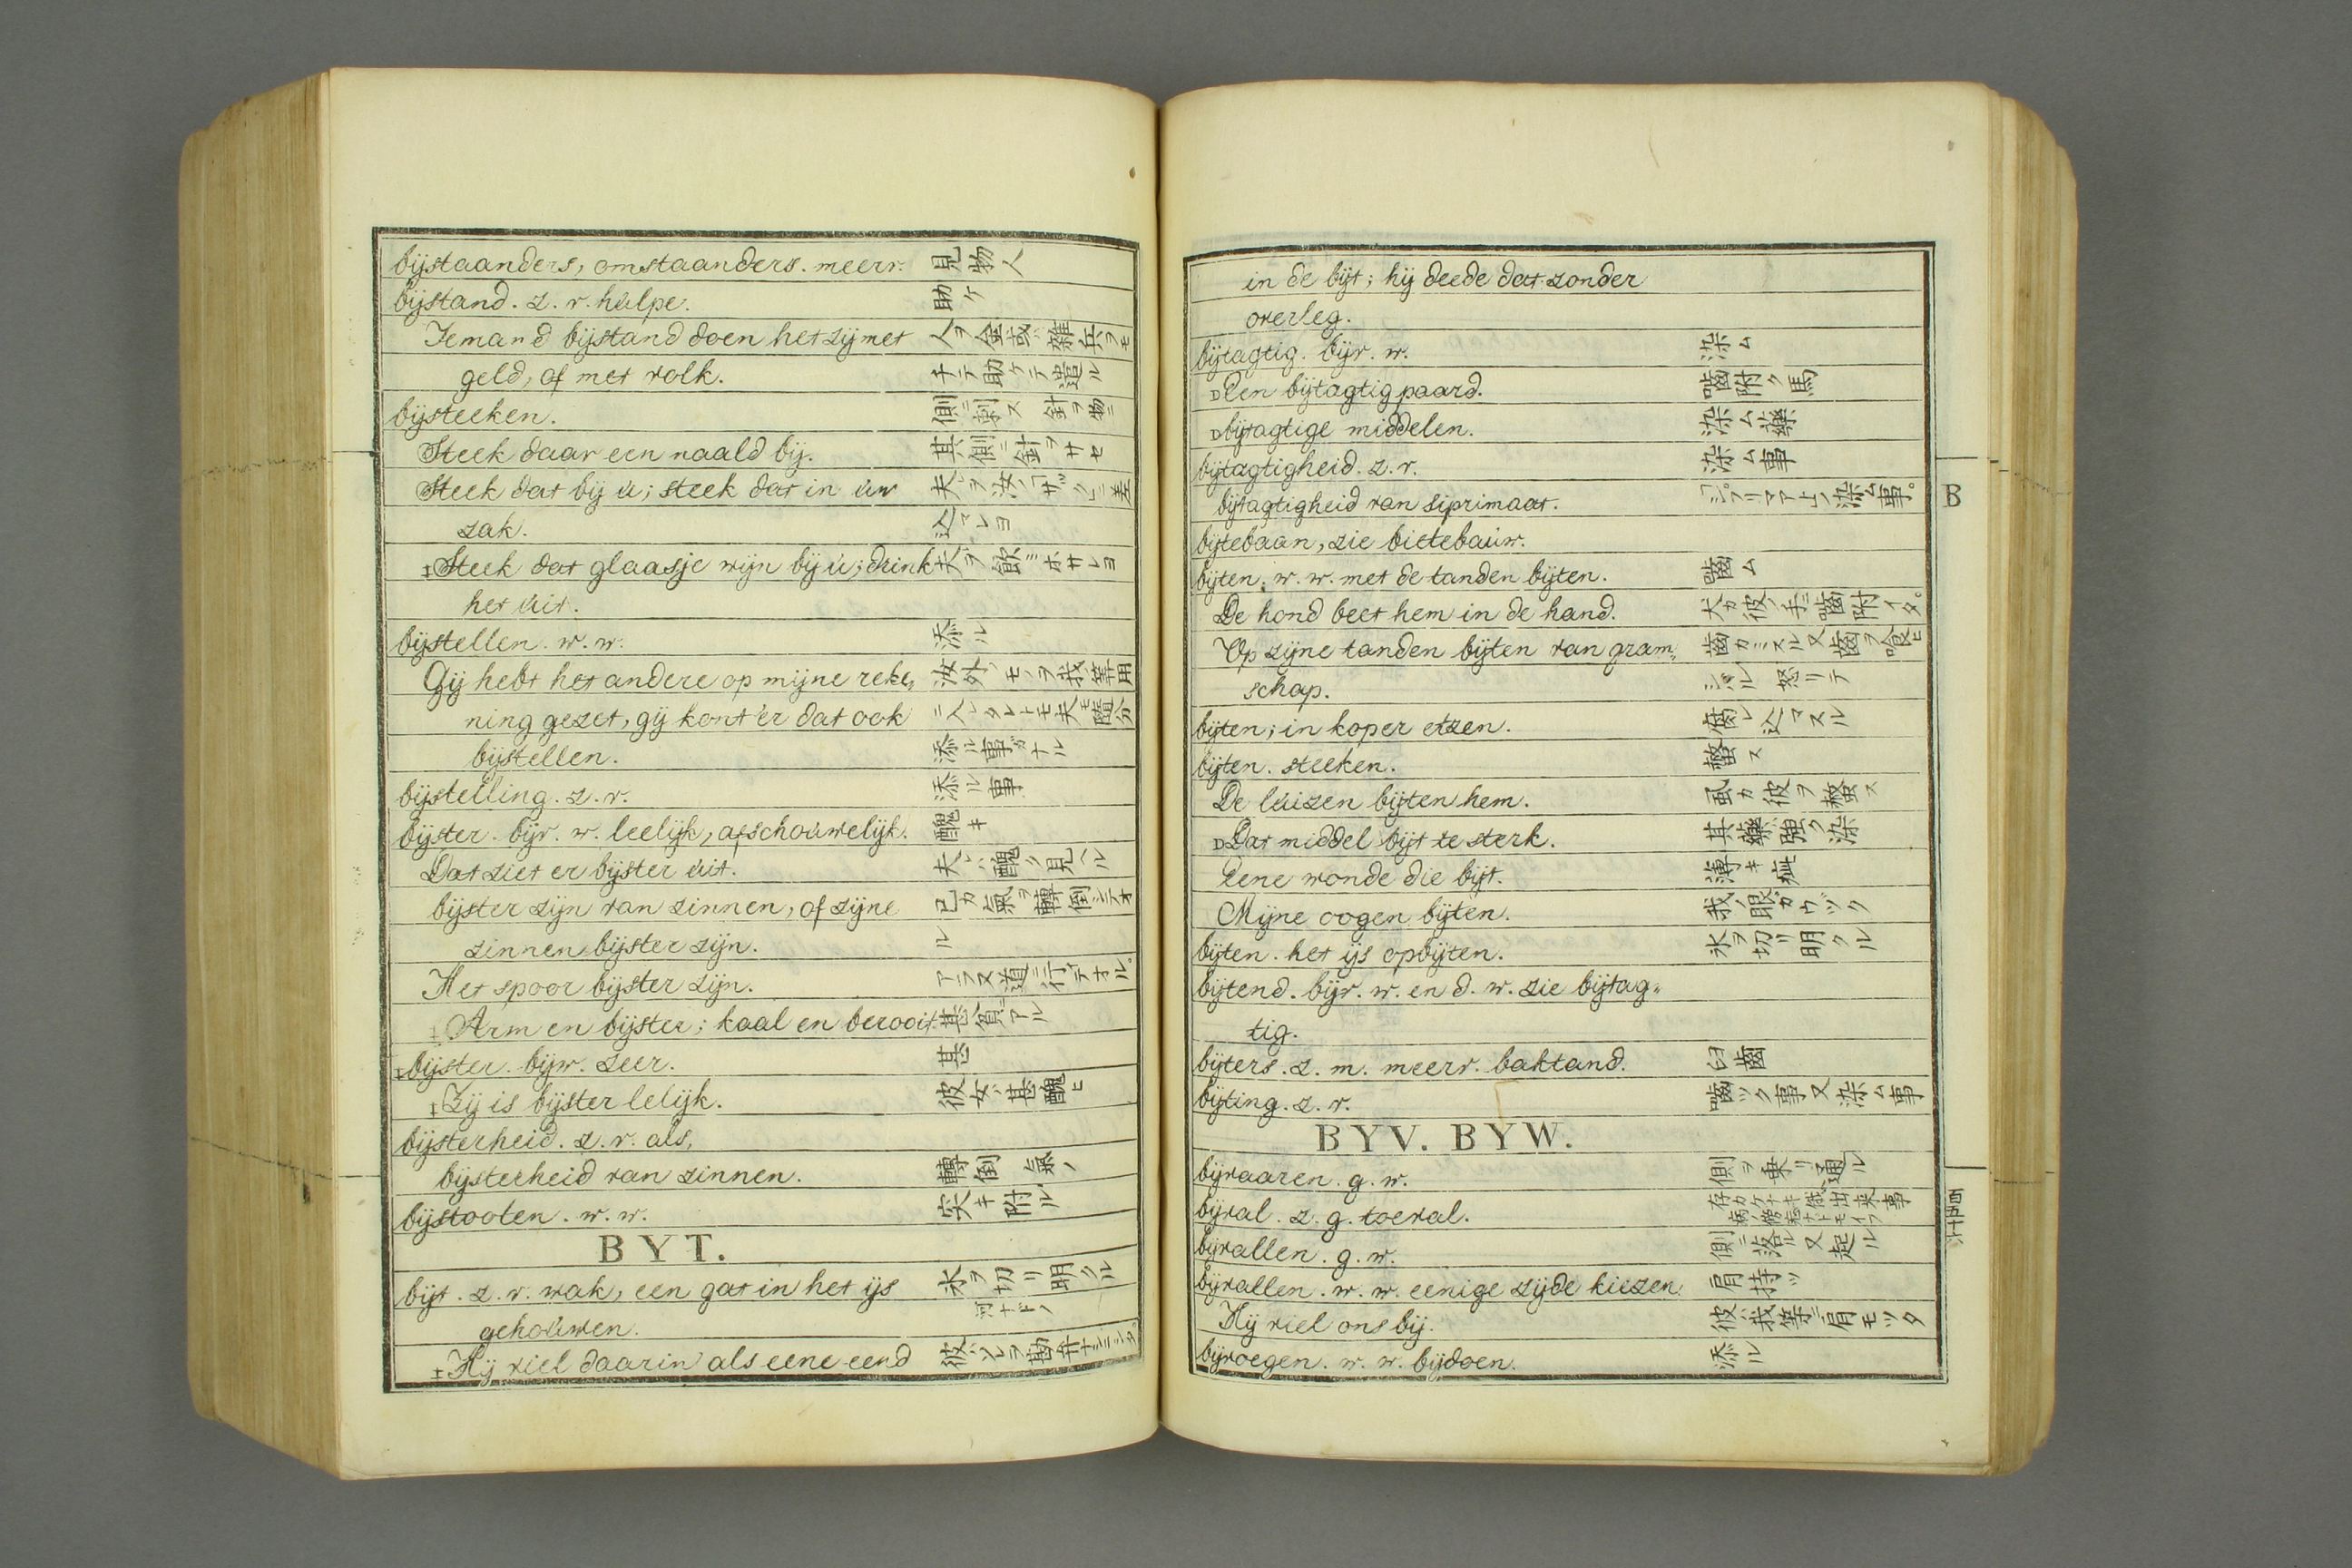 bijstaanders, omstaanders. meerv. 見物人
bijstand. z. v. hulpe. 助ケ
Iemand bijstand doen het zij met 人ヲ金或雜兵ヲモ
geld, of met volk. チテ助ケテ遣ル
bijsteeken. 側ニ刺ス 針ヲ物ニ
Steek daar een naald bij. 其側ニ針ヲサセ
Steek dat bij u; steek dat in uw 夫ヲ汝ノ
zak. 込マレヨ
‡Steek dat glaasje wijn bij u; drink 夫ヲ飲ミホサレヨ
het uit.
bijstellen. w. w. 添ル
Gij hebt het andere op mijne reke„ 汝外ノモノヲ我等用
ning gezet, gij kont'er dat ook ニ入レタレトモ夫モ隨分
bijstellen. 添ル事ガナル
bijstelling. z. v. 添ル事
bijster. bijv. w. leelijk, afschouwelijk. 醜キ
Dat ziet er bijster uit. 夫レハ醜ク見ヘル
bijster zijn van zinnen, of zijne 己カ氣ヲ轉倒シテオ
zinnen bijster zijn. ル
Het spoor bijster zijn. アラヌ道ニ行テオル。
‡Arm en bijster; kaal en berooit. 甚貧ニアル
‡bijster. bijw. zeer. 甚
‡Zij is bijster lelijk. 彼女ハ甚醜ヒ
bijsterheid. z. v. als,
bijsterheid van zinnen. 轉倒 氣ノ
bijstooten. w. w. 突キ附ル
BYT.
bijt. z. v. wak, een gat in het ijs 氷ヲ切リ明クル
gehouwen. 河ナドノ
‡Hij viel daarin als eene eend 彼ハソレヲ勘弁ナシニシタ。
in de bijt; hij deede dat zonder
overleg.
bijtagtig. bijv. w. 染ム
DEen bijtagtig paard. 嚙附ク馬
Dbijtagtige middelen. 染ム藥
bijtagtigheid. z. v. 染ム事
bijtagtigheid van siprimaat. 染ム事。
B
bijtebaan, zie bietebauw.
bijten. w. w. met de tanden bijten. 嚙ム
De hond beet hem in de hand. 犬カ彼ノ手ニ嚙附イタ。
Op zijne tanden bijten van gram„ 齒カミスル又齒ヲ喰ヒ
schap. シバル 怒リテ
bijten; in koper etzen. 腐レ込マスル
bijten. steeken. 螫ス
De luizen bijten hem. 虱カ彼ヲ螫ス
DDat middel bijt te sterk. 其藥ハ強ク染
Eene wonde die bijt.
Mijne oogen bijten. 我ノ眼ガウヅク
bijten. het ijs opbijten. 氷ヲ切リ明クル
bijtend. bijv. w. en d. w. zie bijtag„
tig.
bijters. z. m. meerv. baktand. 臼齒
bijting. z. v. 嚙ツク事又染ム事
BYV. BYW.
bijvaaren. g. w. 側ヲ乗リ通ル
bijval. z. g. toeval. 存カケナキ俄ニ出来事
bijvallen. g. w. 側ニ落ル又起ル
bijvallen. w. w. eenige zijde kiezen. 肩持ツ
Hij viel ons bij. 彼ハ我等ニ肩モツタ
bijvoegen. w. w. bijdoen. 添ル